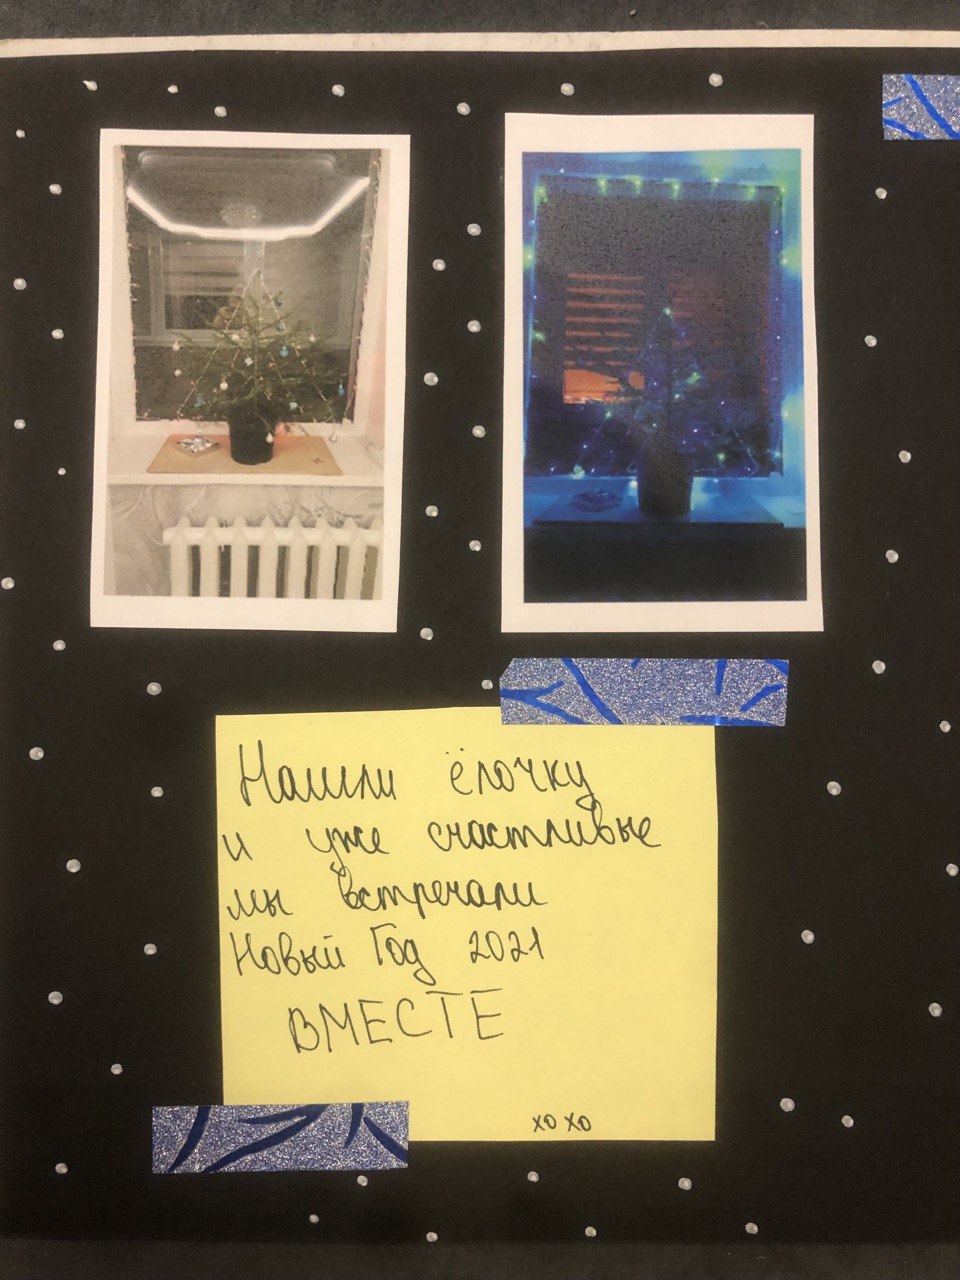 Нашли ёлочку
и уже счастливые
мы встречали
Новый Год 2021
ВМЕСТЕ
хо хо